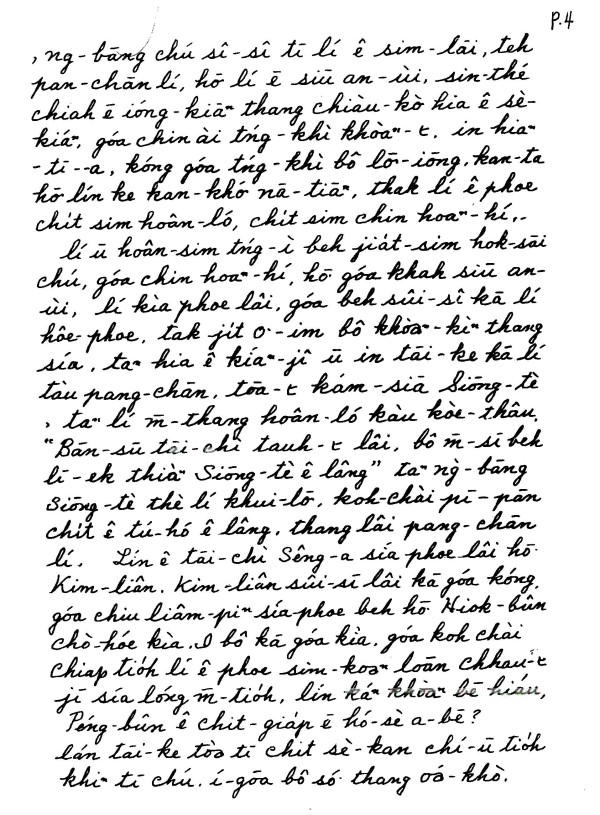 P.4
, ng-bāng chú sî-sî tī lí ê sim-lāi, teh
pan-chān lí, hō͘ lí ē siū an-ùi, sin-thé
chiah ē ióng-kiāⁿ thang chiàu-kò͘ hia ê sè-
kiáⁿ, góa chin ài tńg-khì khòaⁿ-t, in hiaⁿ
-tī--a, kóng góa tńg-khì bô lō͘-iōng, kan-ta
hō͘ lín ke kan-khó͘ nā-tiāⁿ, thak lí ê phoe
chi̍t sim hoân-ló, chi̍t sim chin hoaⁿ-hí,.
lí ū hoân-sim tńg-ì beh jia̍t-sim ho̍k-sāi
chú, góa chin hoaⁿ-hí, hō͘ góa khah siū an-
ùi, lí kìa phoe lâi, góa beh sûi-sî kā lí
hôe-phoe, ta̍k ji̍t o͘-im bô khòaⁿ-kìⁿ thang
sía, taⁿ hia ê kíaⁿ-jî ū in tāi-ke kā lí
tàu pang-chān, tōa-t kám-siā Siōng-tè
, taⁿ lí m̄-thang hoân-ló kàu kòe-thâu,
"Bān-sū tāi-chì tauh-t lâi, bô m̄-sī beh
lī-ek thiàⁿ Siōng-tè ê lâng" taⁿ ǹg-bāng
Siōng-tè thè lí khui-lō͘, koh-chài pī-pān
chi̍t ê tú-hó ê lâng, thang lâi pang-chān
lí. Lín ê tāi-chì Sêng-a sía phoe lâi hō͘
Kim-liân. Kim-liân sûi-sī lâi kā góa kóng,
góa chiu liâm-piⁿ sía-phoe beh hō͘ Hiok-bûn
chò-hóe kìa, I bô kā góa kìa, góa koh chài
chiap tio̍h lí ê phoe sim-koaⁿ loān chhau-t
jī sía lóng m̄-tio̍h, lín káⁿ khòaⁿ bē hiáu,
Péng-bûn ê chit-gia̍p ē hó-sè a-bē?
lán tāi-ke tòa tī chit sè-kan chí-ū tio̍h
khiⁿ tī chú. í-gōa bô só͘ thang oá-khò.